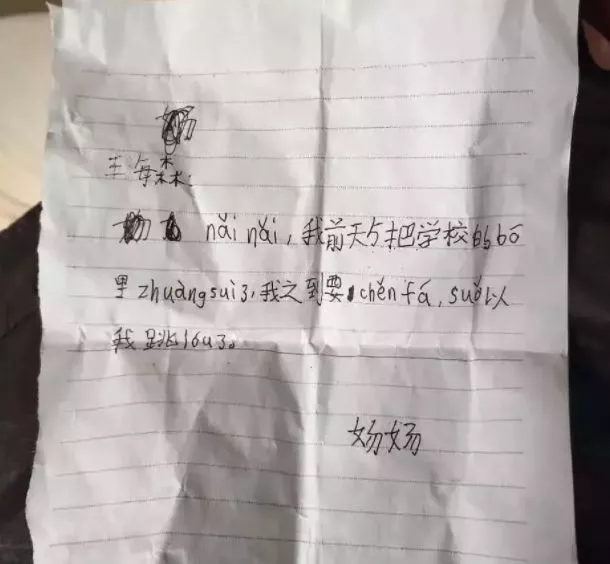 nǎi nǎi,我前天 把学校的bō
里zhuàng suì 3,我之到要chěn fá,suǒ以
我跳lóu 3。